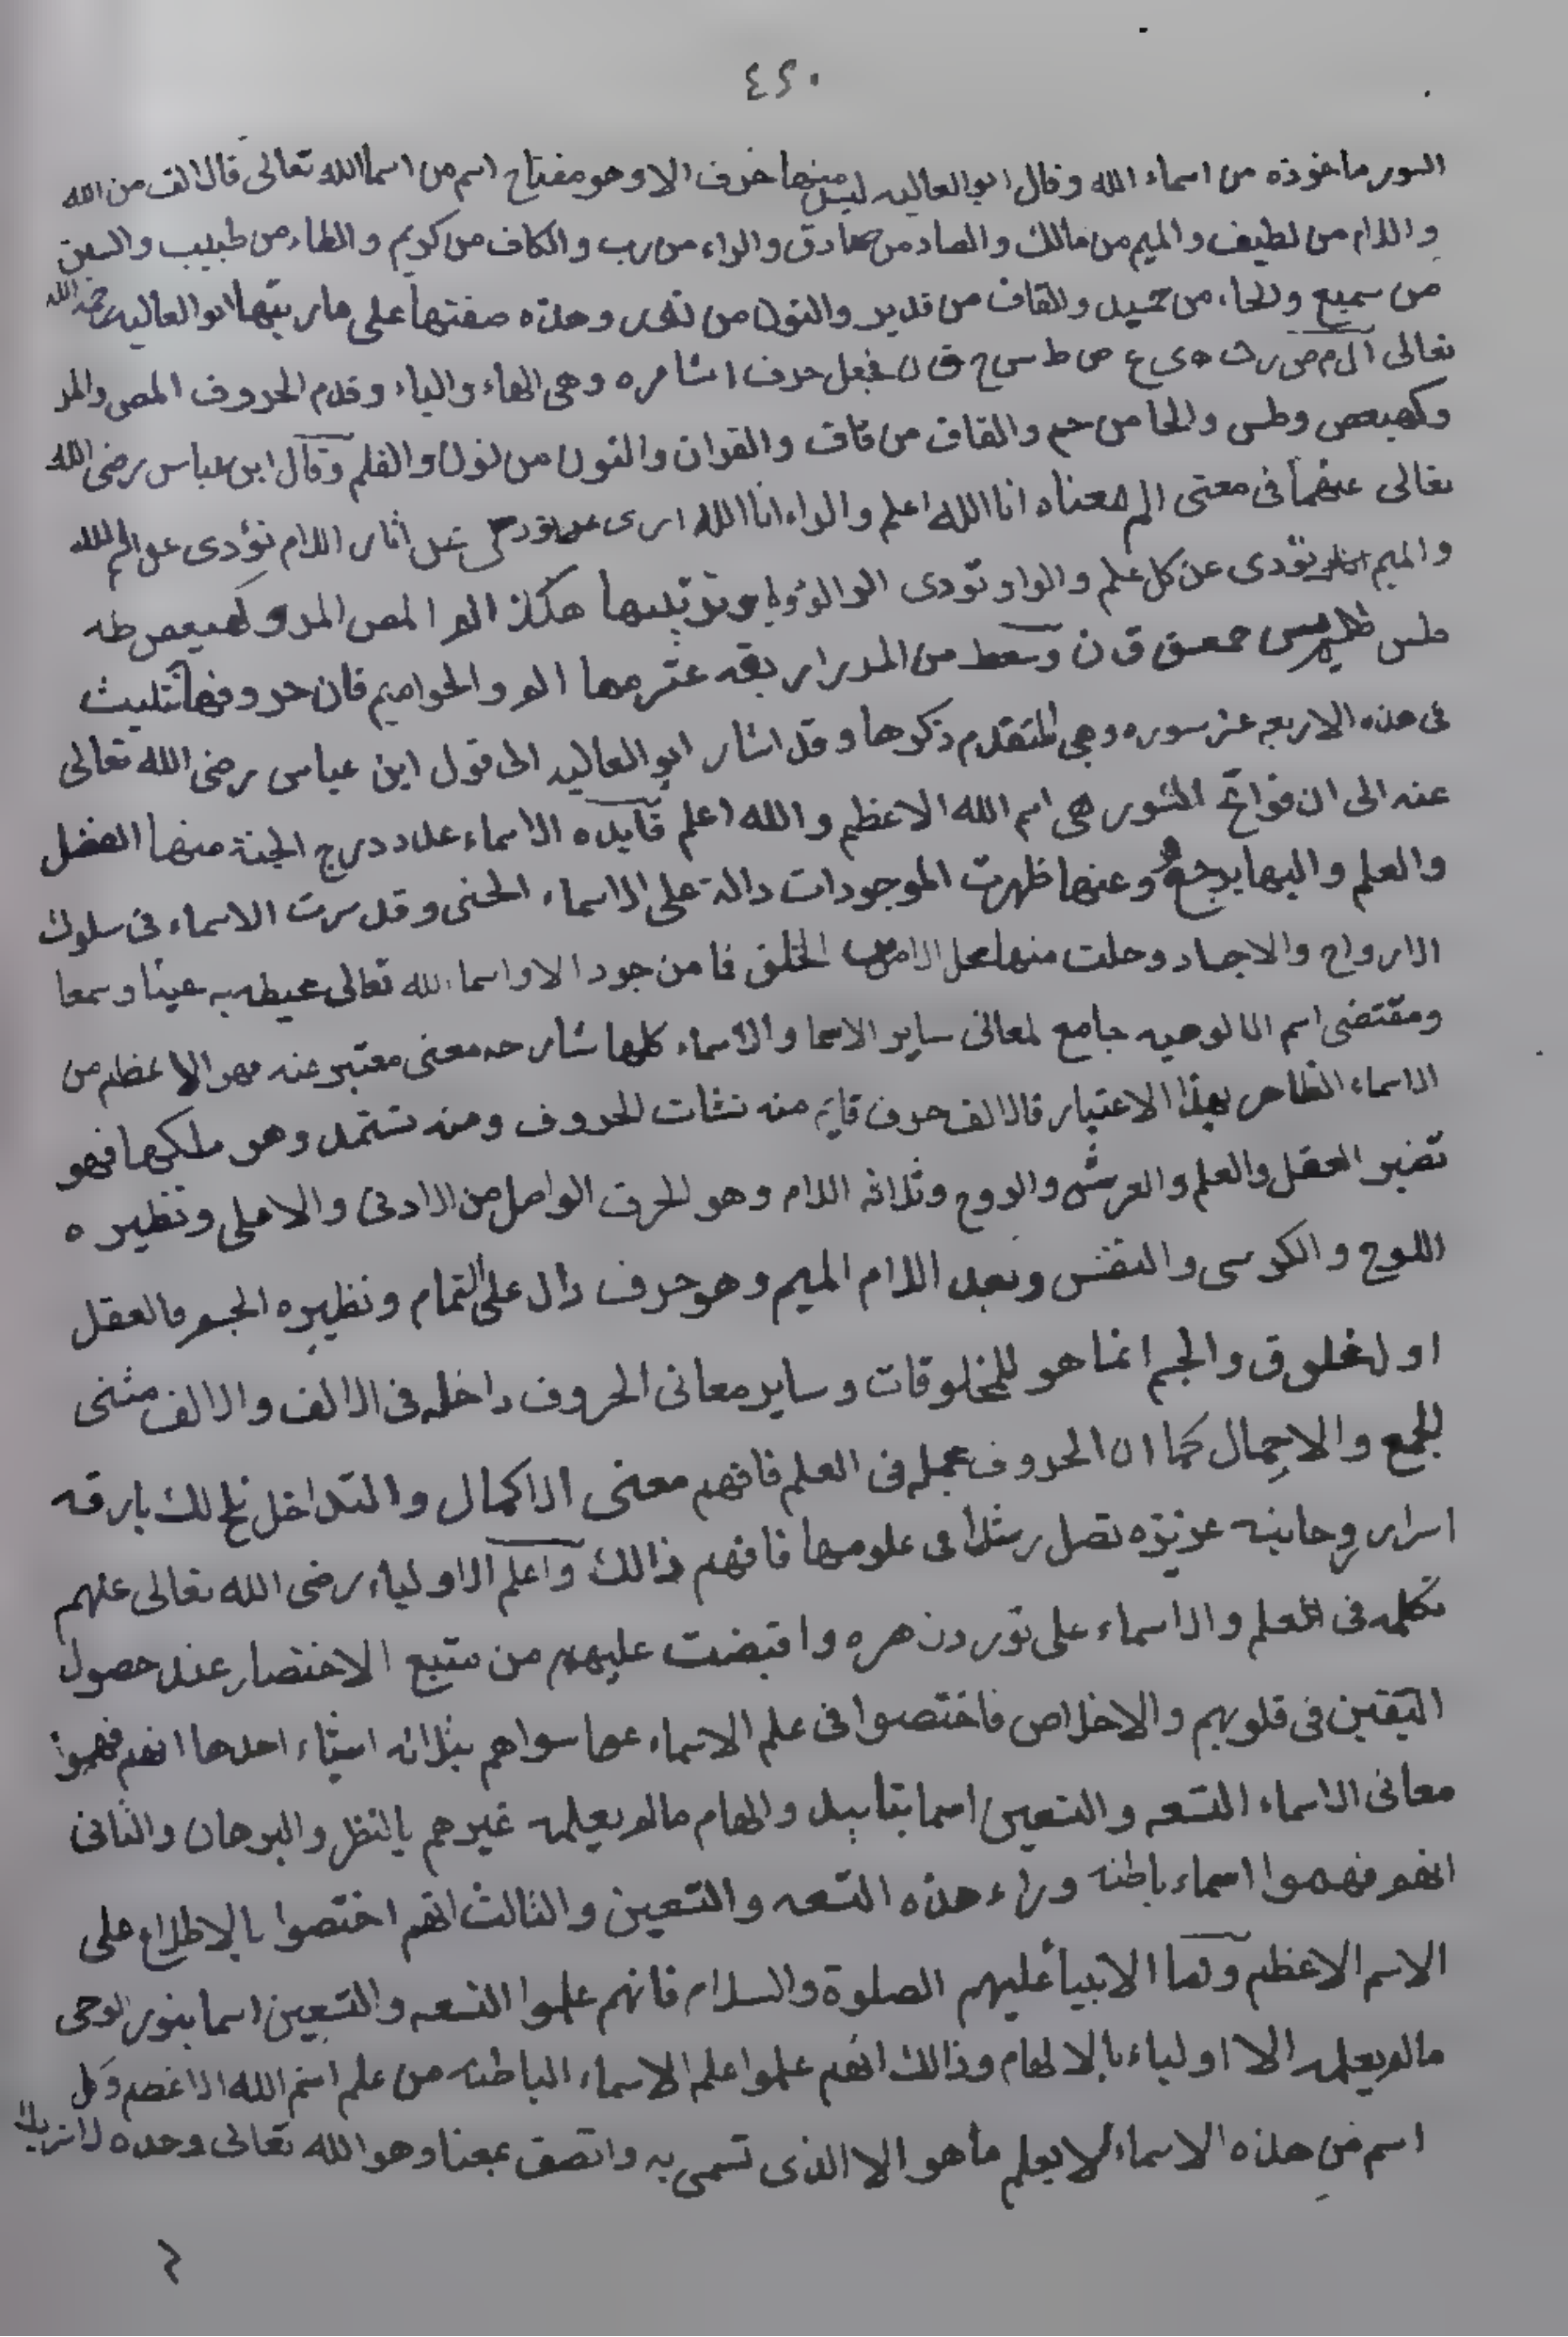 ٤٢٠
السور ماخوذه من اسماء الله وقال ابو العاليه ليس منها حرف الا وهو مفتاح اسم من اسما الله تعالى قال الف من الله
واللام من لطيف والميم من مالك والصاد من صادق والراء من رب والكاف من كريم والطاء من طبيب والسين
من سميع والحاء من حميد والقاف من قدير والنون من نور وهذه صفتها على ما رتبها ابو العاليه رحمه الله
تعالى ا ل م ص ر ك ه ى ع ص ط س ح ق ن فجعل حرف اشاره وهى الهاء والياء وقدم الحروف المص والمر
وكهيعص وطس والحا من حم والقاف من قاف والقران والنون من نون والقلم وقال ابن عباس رضى الله
تعالى عنهما فى معنى الم معناه انا الله اعلم والراء انا الله ارى اللام تؤدى عن
والميم تؤدى عن كل علم والواو تؤدى وترتيبها هكذا الم المص المر وكهيعص طه
طس يس حمعسق ق ن وسقط من المدرار بقه عشر منها الر والحواميم فان حروفها تثليث
فى هذه الاربعه عشر سوره وهى المتقدم ذكرها وقد اشار ابو العاليه الى قول ابن عباس رضى الله تعالى
عنه الى ان فواتح السور هى اسم الله الاعظم والله اعلم قايده الاسماء عدد درج الجنة منها الفضل
والعلم واليها يرجع وعنها ظهرت الموجودات دالة على الاسماء الحسنى وقد سرت الاسماء فى سلوك
الارواح والاجساد وحلت منها محل الامر الخلق فما من جود الا واسماء الله تعالى محيطه به عينا وسمعا
ومقتضى اسم الالوهيه جامع لمعانى ساير الاسما والاسماء كلها شارحه معنى معتبر عنه فهو الاعظم من
الاسماء الظاهر بهذا الاعتبار قال الف حرف قايم منه نشات الحروف ومنه تستمد وهو ملكها فهو
تضير العقل والعلم والعرش والروح وثلاثه اللام وهو الحرف الواصل من الادنى والاعلى ونظيره
اللوح والكرسى والنفس وبعد اللام الميم وهو حرف دال على التمام ونظيره الجسم فالعقل
اول مخلوق والجسم انما هو للمخلوقات وساير معانى الحروف داخله فى الالف والالف مثنى
للجمع والاجمال كما ان الحروف مجمله فى العلم فافهم معنى الاكمال والتداخل تلح لك بارقه
اسرار روحانيه عزيزه تصل رشدا فى علومها فافهم ذالك واعلم الاولياء رضى الله تعالى عنهم
تكلمه فى العلم والاسماء على نور دن هره واقبضت عليهم من منبع الاختصار عند حصول
اليقين فى قلوبهم والاخلاص فاختصوا فى علم الاسماء عما سواهم بثلاثه اشياء احدها انهم فهموا
معانى الاسماء التسعه والتسعين اسما بتاييد والهام مالم يعلمه غيرهم بالنظر والبرهان والثانى
انهم فهموا اسماء باطنه وراء هذه التسعه والتسعين والثالث انهم اختصوا بالاطلاع على
الاسم الاعظم واما الانبيأ عليهم الصلوة والسلام فانهم علموا التسعه والتسعين اسما بنور الوحى
مالم يعلمه الا اولياء بالالهام وذالك انهم علموا علم الاسماء الباطنه من علم اسم الله الاعضم وكل
اسم من هذه الاسماء لا يعلم ما هو الا الذى تسمى به واتصف بمعنا وهو الله تعالى وحده